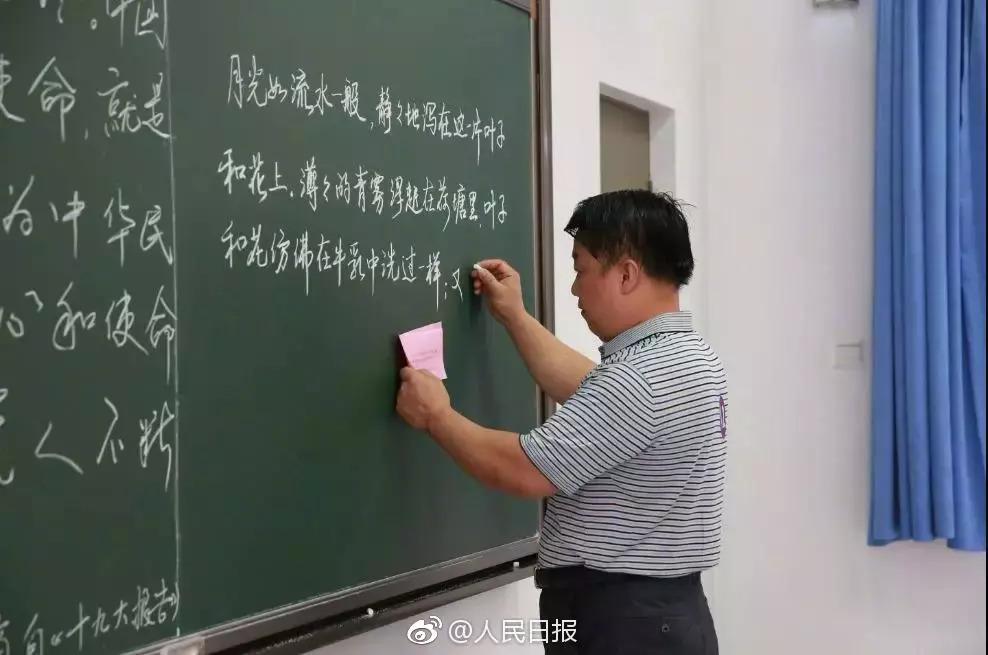 中国
使命,就是
为中华民
和使命
人不断
《十九大报告》
月光如流水一般,静々地泻在这一片叶子
和花上。薄々的青雾浮起在荷塘里。叶子
和花仿佛在牛乳中洗过一样;又
@人民日报